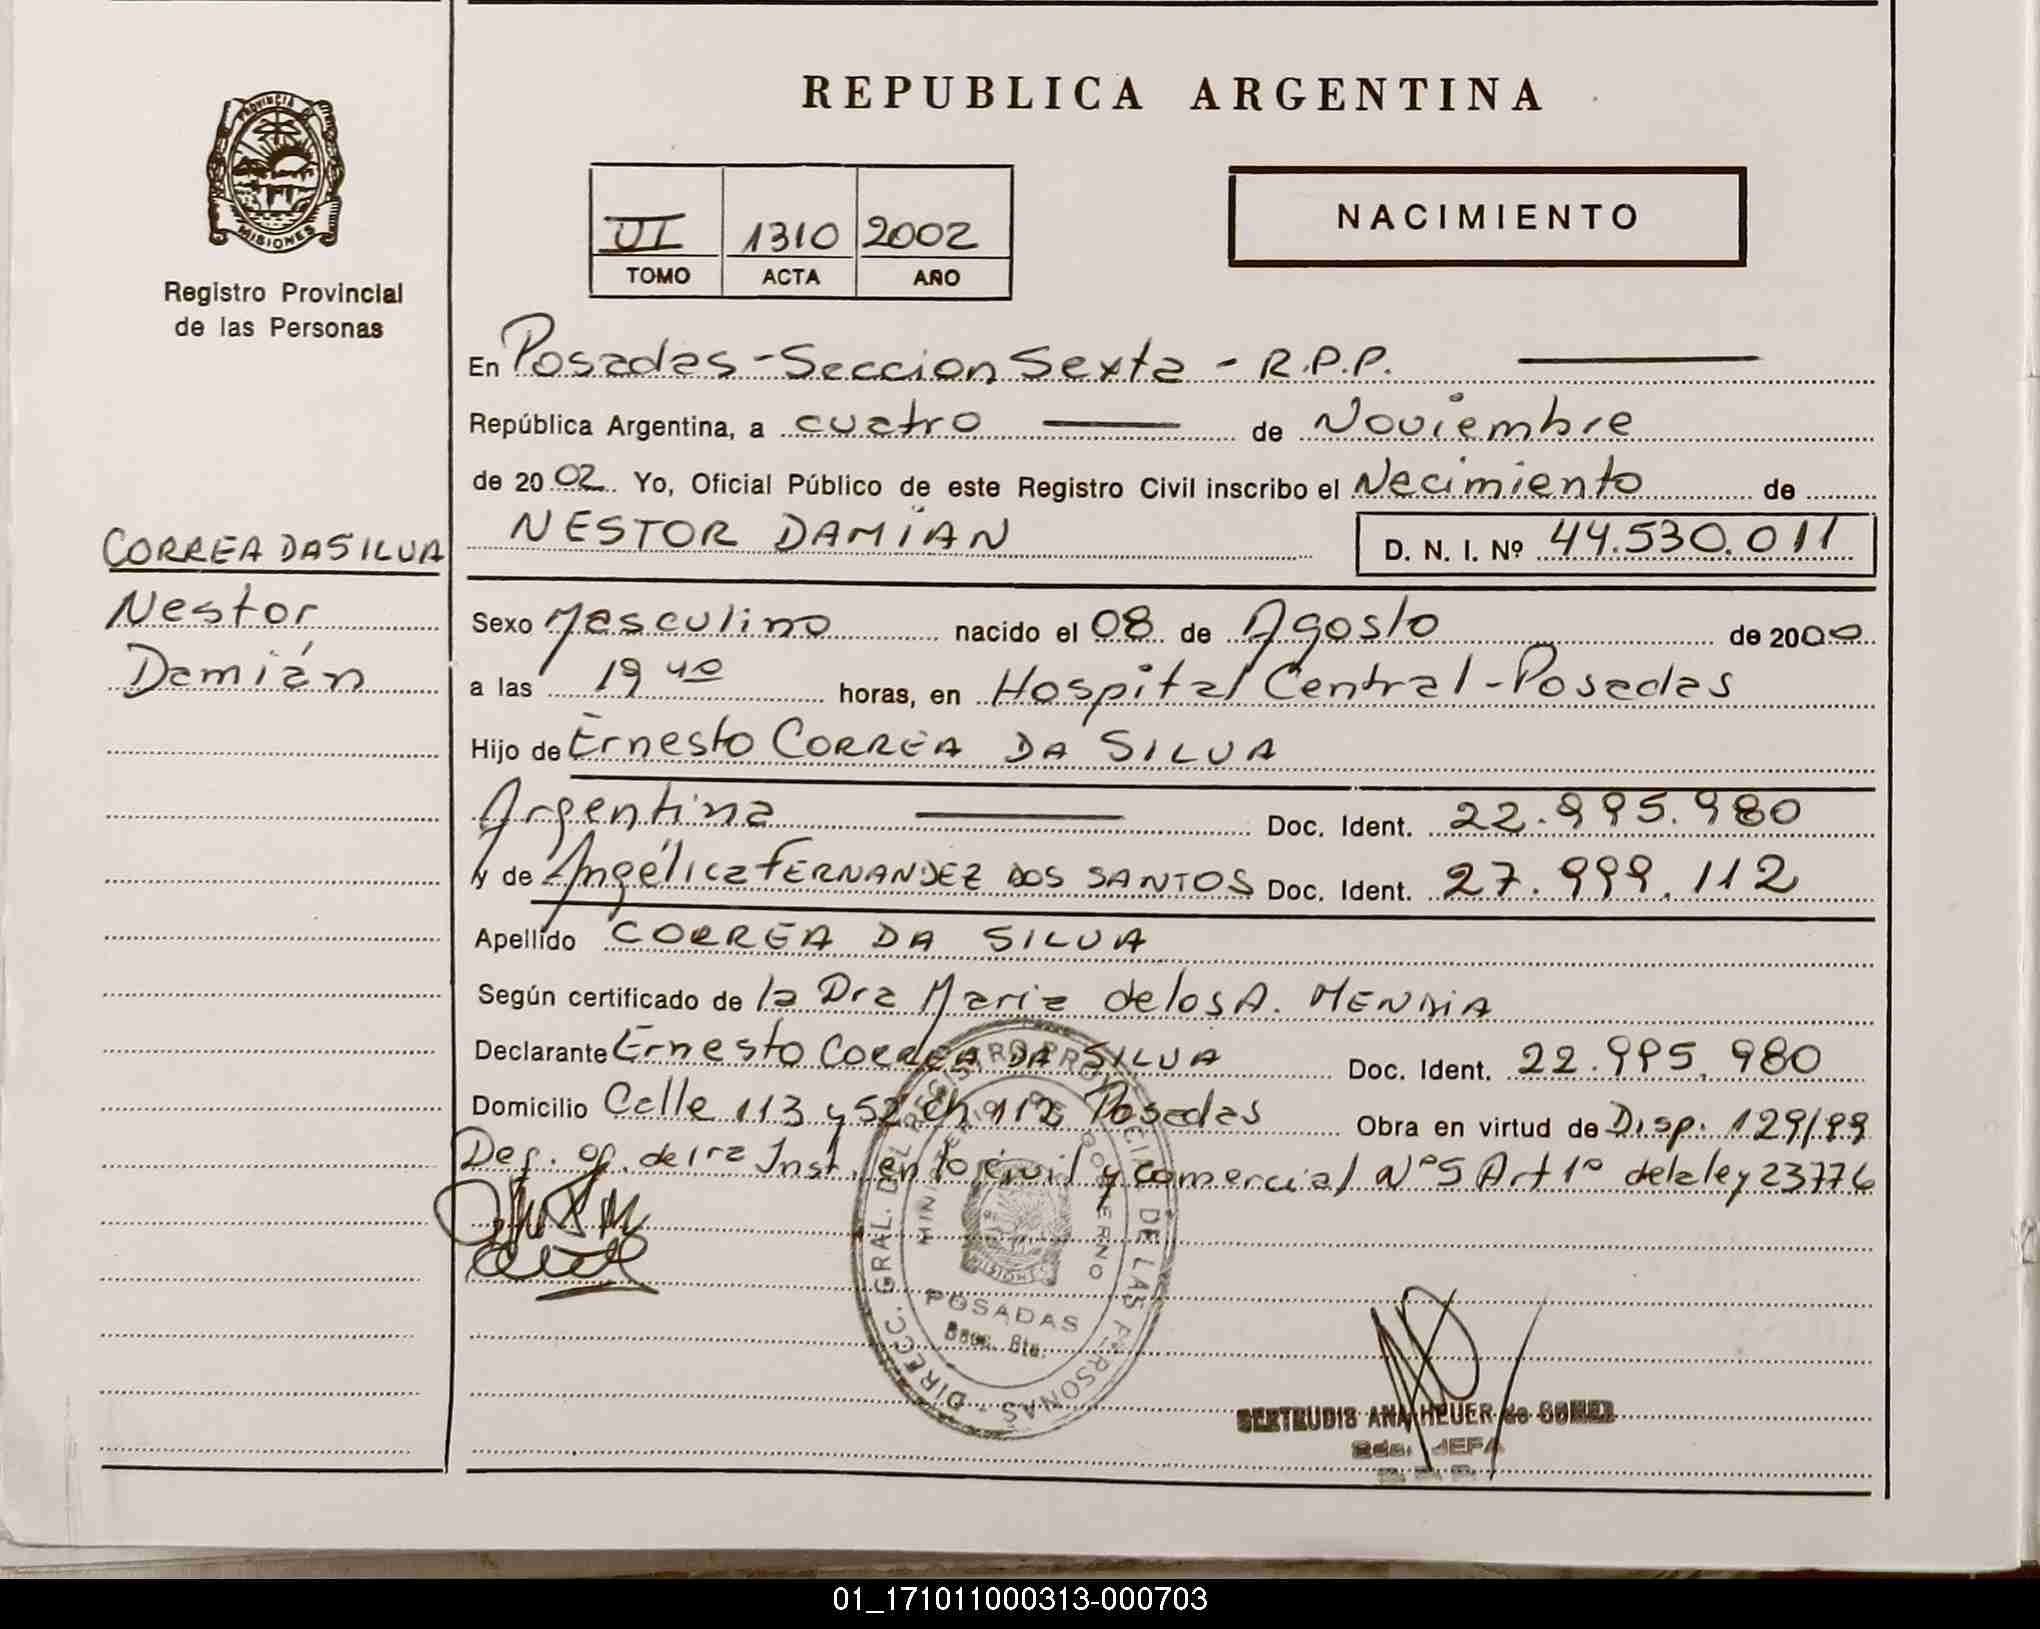 REPUBLICA ARGENTINA
PROVINCIA DE
MISIONES
Registro Provincial
de las Personas
VI 1310 2002
TOMO ACTA AÑO
NACIMIENTO
En Posadas - Seccion Sexta - R.P.P.
República Argentina, a cuatro de Noviembre
de 2002. Yo, Oficial Público de este Registro Civil inscribo el Nacimiento de
NESTOR DAMIAN D. N. I. Nº 44.530.011
CORREA DA SILVA
Nestor
Damián
Sexo Masculino nacido el 08 de Agosto de 2000
a las 19 40 horas, en Hospital Central - Posadas
Hijo de Ernesto CORREA DA SILVA
Argentina Doc. Ident. 22.995.980
y de Angélica FERNANDEZ DOS SANTOS Doc. Ident. 27.999.112
Apellido CORREA DA SILVA
Según certificado de la Dra Maria de los A.
Declarante Ernesto CORREA DA SILVA Doc. Ident. 22.995.980
Domicilio Calle 113 y 52 Ch 112 Posadas Obra en virtud de Disp. 129/99
Def. of. de 1ra Inst. en lo civil y comercial Nº 5 Art 1º de la ley 23776
DIRECC. GRAL. DEL REGISTRO PROVINCIAL DE LAS PERSONAS
MINISTERIO DE GOBIERNO
MISIONES
POSADAS
GERTRUDIS ANA HEUER de GOMEZ
JEFA
01_171011000313-000703